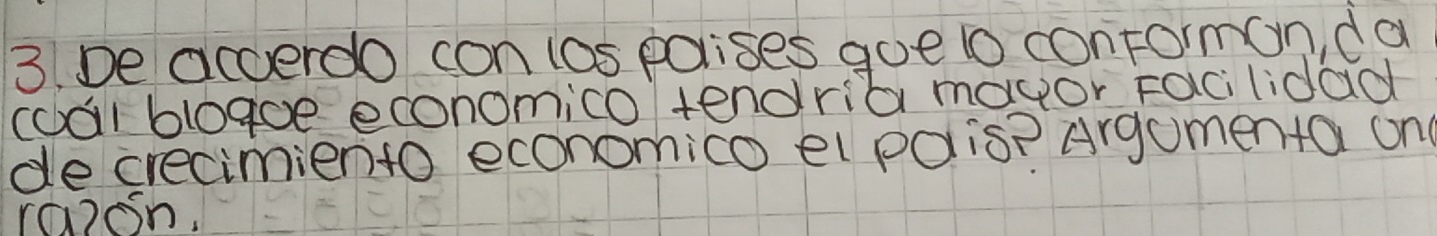 3. De acuerdo con los paises que lo conforman, ¿a
cuál bloque economico tendria mayor Facilidad
de crecimiento economico el pais? Argumenta una
razón.